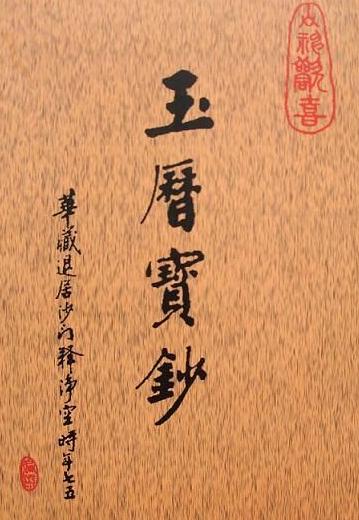 歡喜
玉曆寶鈔
華藏退居沙門釋淨空時年七五